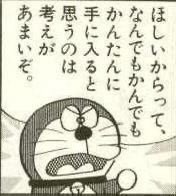 ほしいからって、
なんでもかんでも
かんたんに
手に入ると
思うのは
考えが
あまいぞ。